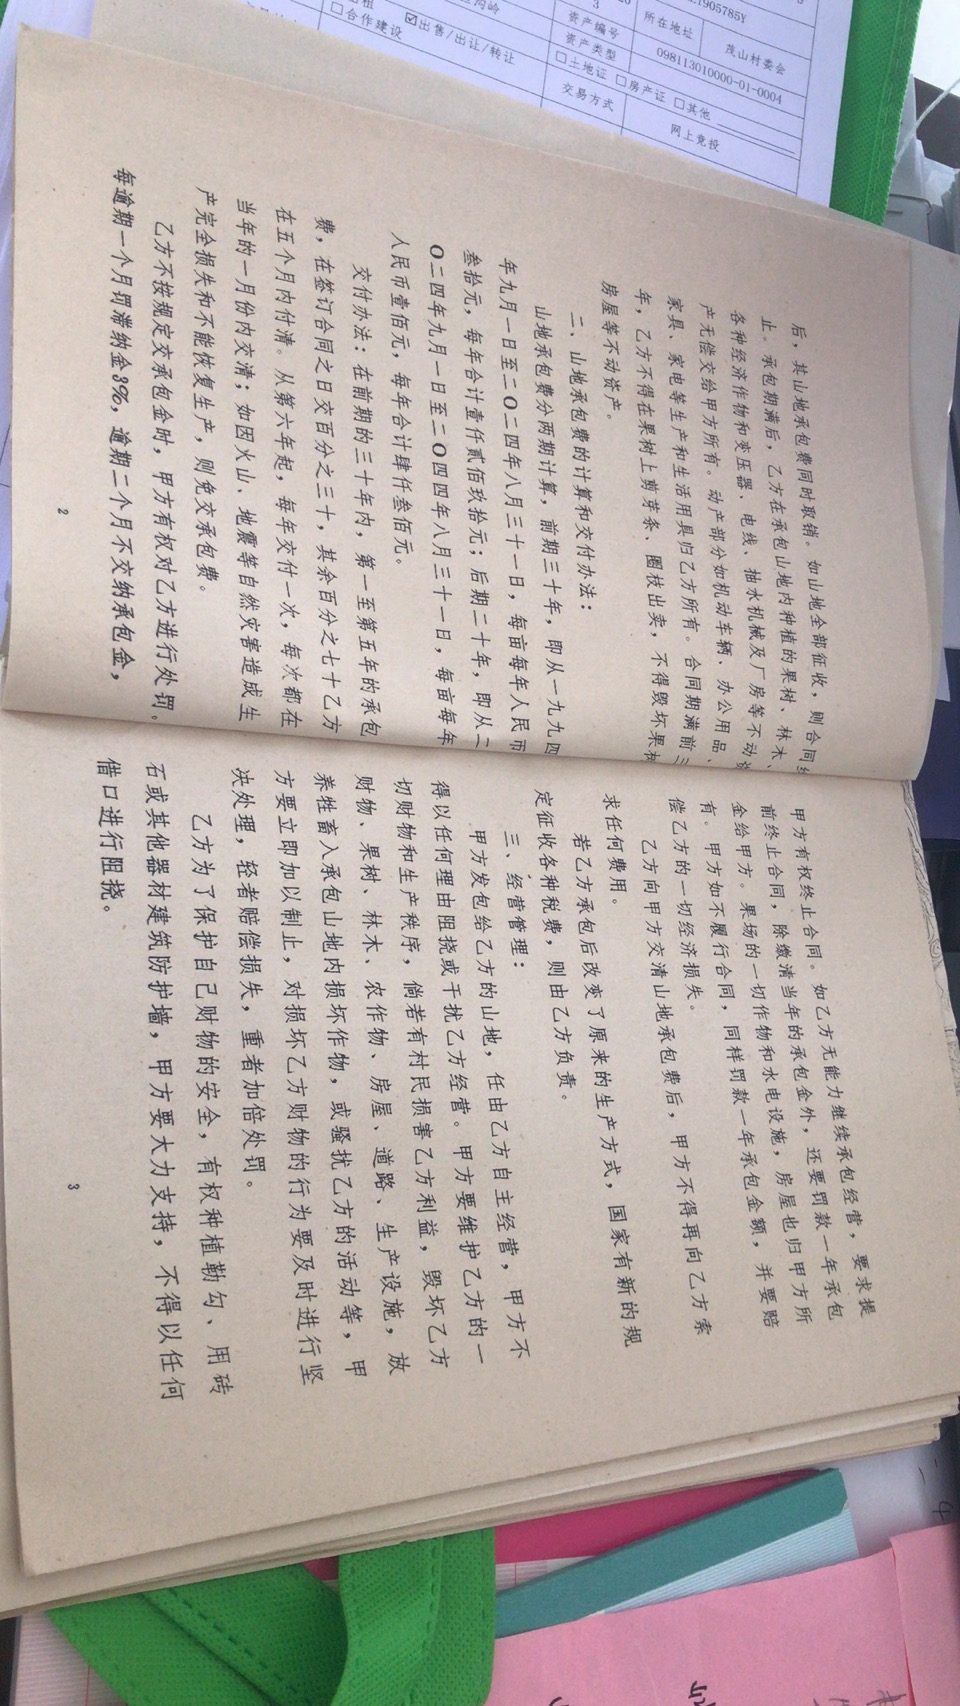 后，其山地承包费同时取销。如山地全部征收，则合同终
止。承包期满后，乙方在承包山地内种植的果树、林木、
各种经济作物和变压器、电线、抽水机械及厂房等不动资
产无偿交给甲方所有。动产部分如机动车辆、办公用品、
家具、家电等生产和生活用具归乙方所有。合同期满前三
年，乙方不得在果树上剪芽条、圈枝出卖，不得毁坏果树
房屋等不动资产。
二、山地承包费的计算和交付办法：
山地承包费分两期计算，前期三十年，即从一九九四
年九月一日至二〇二四年八月三十一日，每亩每年人民币
叁拾元，每年合计壹仟贰佰玖拾元；后期二十年，即从二
〇二四年九月一日至二〇四四年八月三十一日，每亩每年
人民币壹佰元，每年合计肆仟叁佰元。
交付办法：在前期的三十年内，第一至第五年的承包
费，在签订合同之日交百分之三十，其余百分之七十乙方
在五个月内付清。从第六年起，每年交付一次，每次都在
当年的一月份内交清；如因火山、地震等自然灾害造成生
产完全损失和不能恢复生产，则免交承包费。
乙方不按规定交承包金时，甲方有权对乙方进行处罚。
每逾期一个月罚滞纳金3%，逾期二个月不交纳承包金，
2
甲方有权终止合同。如乙方无能力继续承包经营，要求提
前终止合同，除缴清当年的承包金外，还要罚款一年承包
金给甲方。果场的一切作物和水电设施，房屋也归甲方所
有。甲方如不履行合同，同样罚款一年承包金额，并要赔
偿乙方的一切经济损失。
乙方向甲方交清山地承包费后，甲方不得再向乙方索
求任何费用。
若乙方承包后改变了原来的生产方式，国家有新的规
定征收各种税费，则由乙方负责。
三、经营管理：
甲方发包给乙方的山地，任由乙方自主经营，甲方不
得以任何理由阻挠或干扰乙方经营。甲方要维护乙方的一
切财物和生产秩序，倘若有村民损害乙方利益，毁坏乙方
财物、果树、林木、农作物、房屋、道路、生产设施，放
养牲畜入承包山地内损坏作物，或骚扰乙方的活动等，甲
方要立即加以制止，对损坏乙方财物的行为要及时进行坚
决处理，轻者赔偿损失，重者加倍处罚。
乙方为了保护自己财物的安全，有权种植勒勾、用砖
石或其他器材建筑防护墙，甲方要大力支持，不得以任何
借口进行阻挠。
3
1905785Y
所在地址
茂山村委会
资产编号
098113010000-01-0004
资产类型
□土地证 □房产证 □其他
交易方式
网上竞投
□合作建设 ☑出售/出让/转让